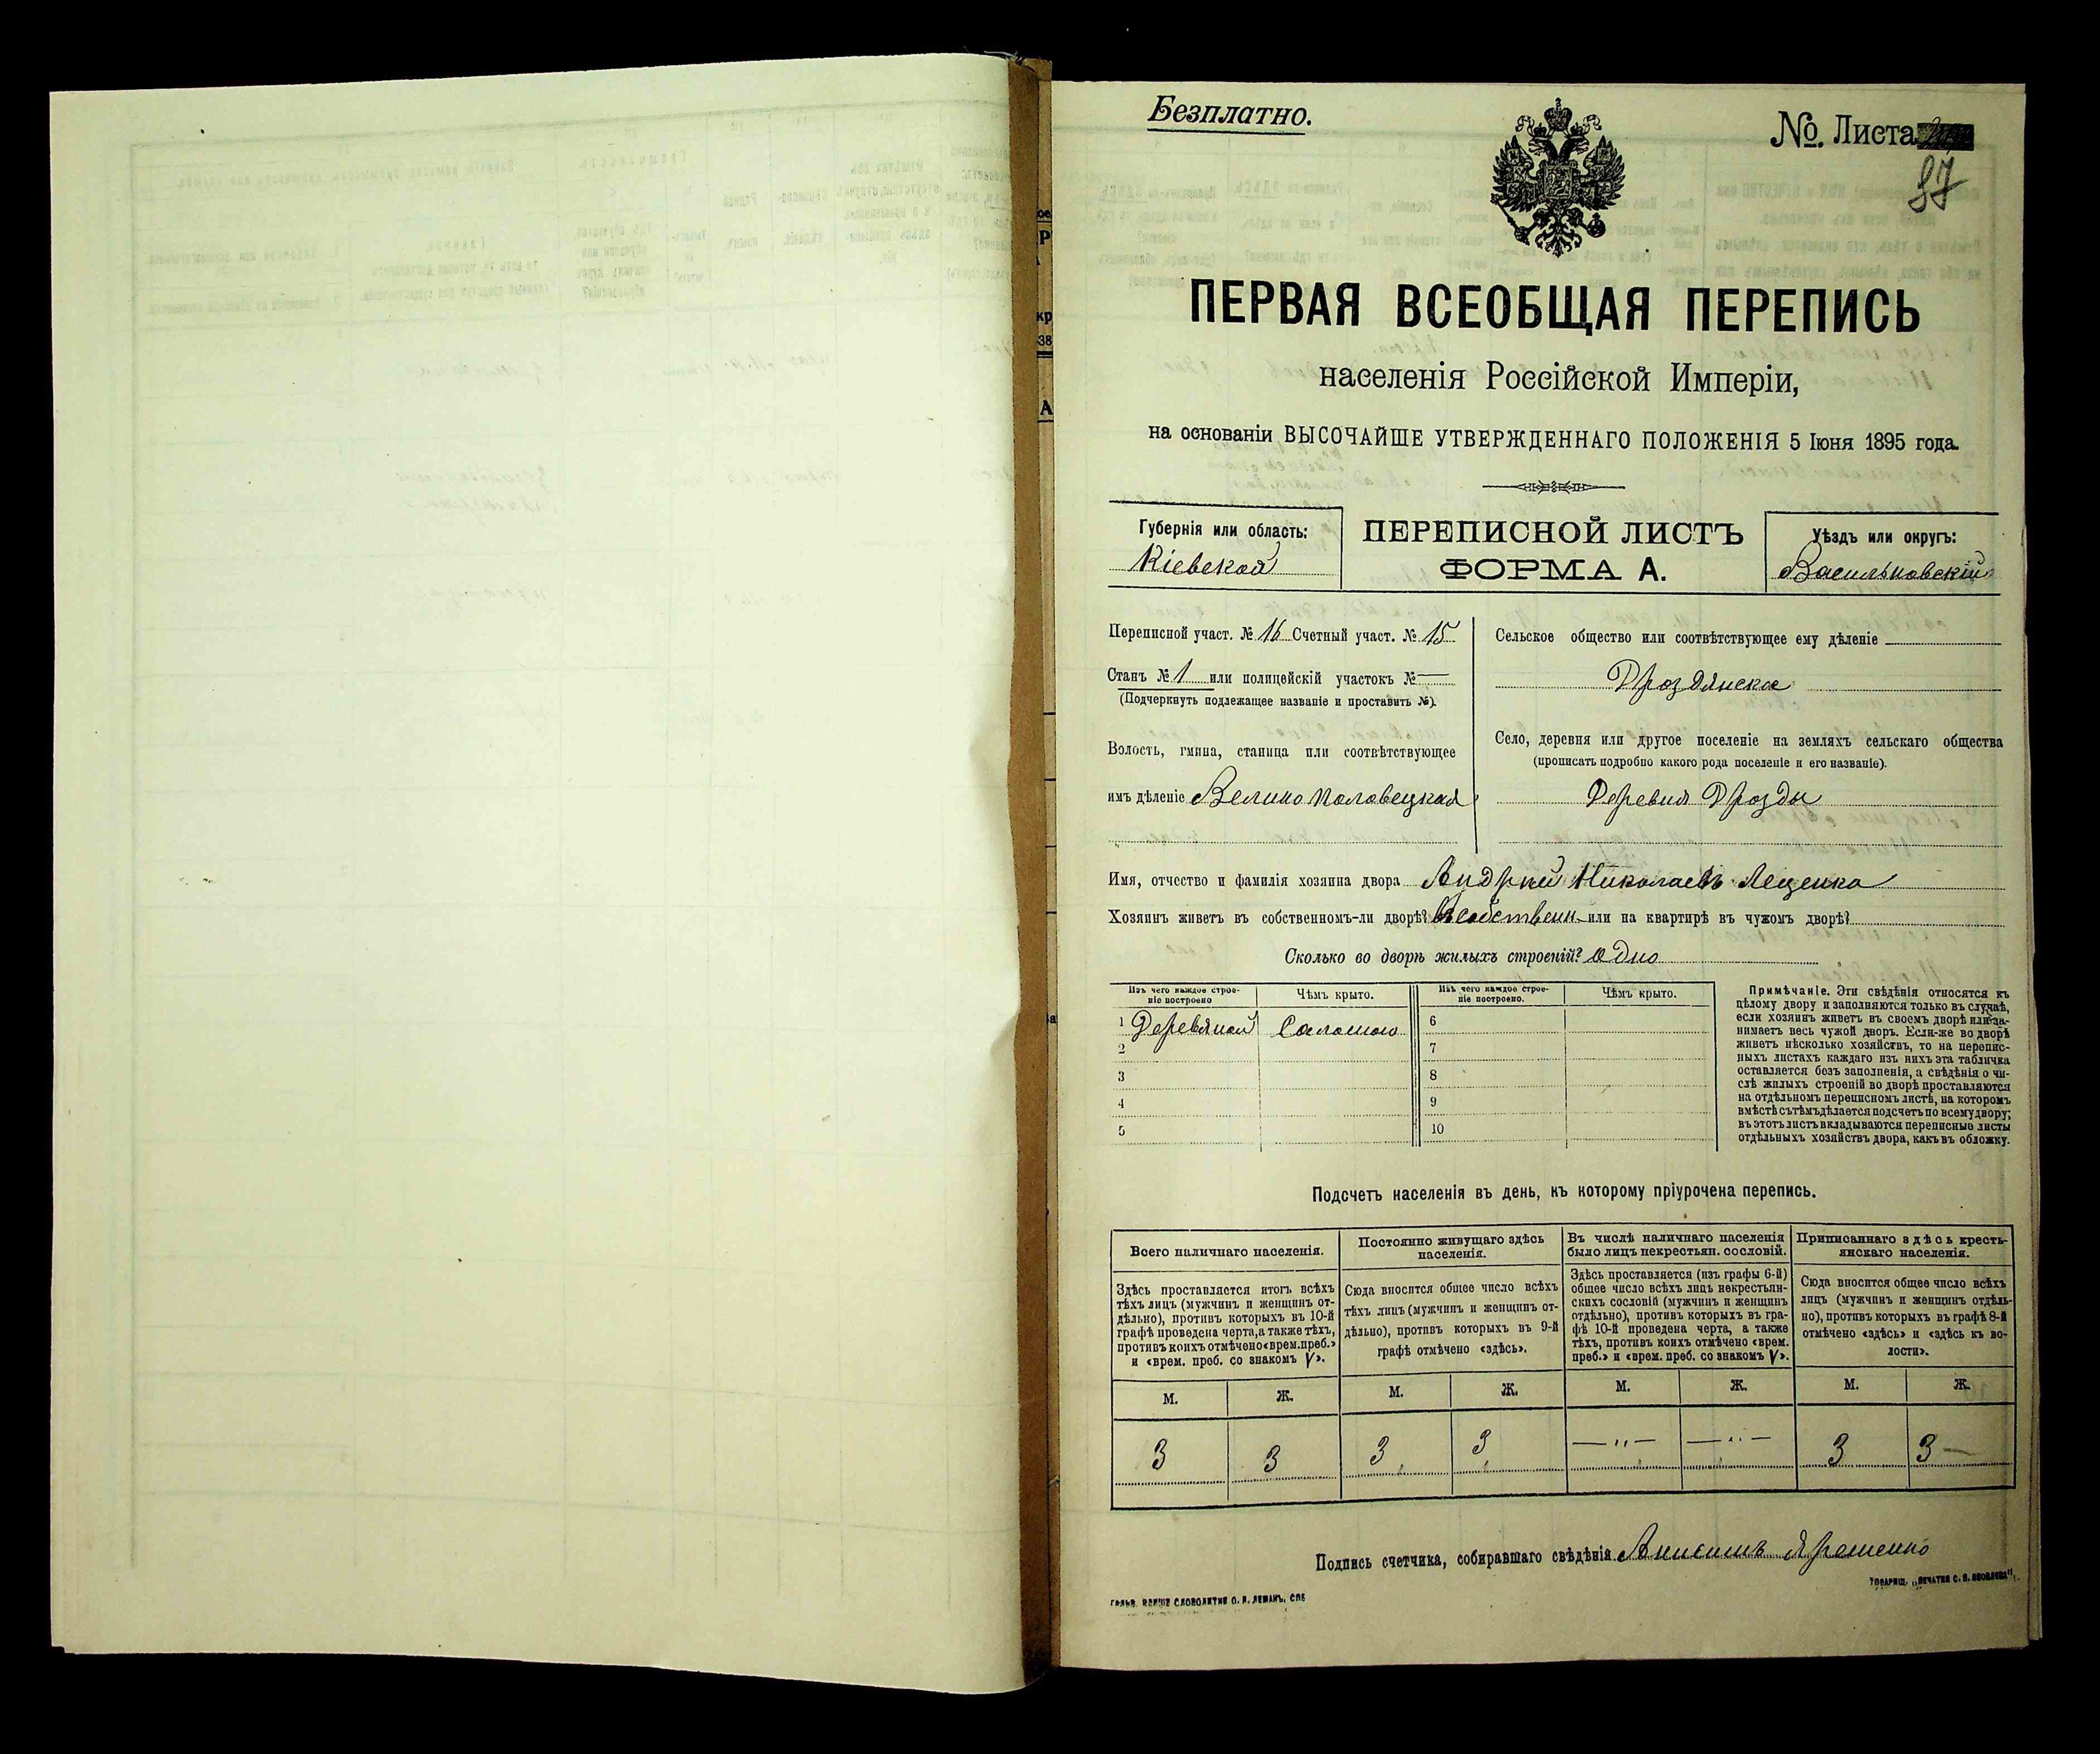 Безплатно.
№. Листа
87
ПЕРВАЯ ВСЕОБЩАЯ ПЕРЕПИСЬ
населенія Россійской Имперіи,
на основаніи ВЫСОЧАЙШЕ УТВЕРЖДЕННАГО ПОЛОЖЕНІЯ 5 Іюня 1895 года.
Губернія или область:
Кіевская
ПЕРЕПИСНОЙ ЛИСТЪ
ФОРМА А.
Уѣздъ или округъ:
Васильковскій
Переписной участ. № 16 Счетный участ. № 15
Станъ № 1 или полицейскій участокъ № —
(Подчеркнуть подлежащее названіе и проставить №).
Волость, гмина, станица или соотвѣтствующее
имъ дѣленіе Велико Половецкая
Сельское общество или соотвѣтствующее ему дѣленіе
Дроздянское
Село, деревня или другое поселеніе на земляхъ сельскаго общества
(прописать подробно какого рода поселеніе и его названіе).
Деревня Дрозды
Имя, отчество и фамилія хозяина двора Андрей Николаевъ Лещенко
Хозяинъ живетъ въ собственномъ-ли дворѣ? Въ собственн. или на квартирѣ въ чужомъ дворѣ?
Сколько во дворѣ жилыхъ строеній? одно
Изъ чего каждое строе-
ніе построено
Чѣмъ крыто.
Изъ чего каждое строе-
ніе построено.
Чѣмъ крыто.
1 Деревяной Саломою 6
2 7
3 8
4 9
5 10
Примѣчаніе. Эти свѣдѣнія относятся къ
цѣлому двору и заполняются только въ случаѣ,
если хозяинъ живетъ въ своемъ дворѣ или за-
нимаетъ весь чужой дворъ. Если-же во дворѣ
живетъ нѣсколько хозяйствъ, то на перепис-
ныхъ листахъ каждаго изъ нихъ эта табличка
оставляется безъ заполненія, а свѣдѣнія о чи-
слѣ жилыхъ строеній во дворѣ проставляются
на отдѣльномъ переписномъ листѣ, на которомъ
вмѣстѣ съ тѣмъ дѣлается подсчетъ по всему двору;
въ этотъ листъ вкладываются переписные листы
отдѣльныхъ хозяйствъ двора, какъ въ обложку.
Подсчетъ населенія въ день, къ которому пріурочена перепись.
Всего наличнаго населенія.
Здѣсь проставляется итогъ всѣхъ
тѣхъ лицъ (мужчинъ и женщинъ от-
дѣльно), противъ которыхъ въ 10-й
графѣ проведена черта, а также тѣхъ,
противъ коихъ отмѣчено «врем. преб.»
и «врем. преб. со знакомъ V».
Постоянно живущаго здѣсь
населенія.
Сюда вносится общее число всѣхъ
тѣхъ лицъ (мужчинъ и женщинъ от-
дѣльно), противъ которыхъ въ 9-й
графѣ отмѣчено «здѣсь».
Въ числѣ наличнаго населенія
было лицъ некрестьян. сословій.
Здѣсь проставляется (изъ графы 6-й)
общее число всѣхъ лицъ некрестьян-
скихъ сословій (мужчинъ и женщинъ
отдѣльно), противъ которыхъ въ гра-
фѣ 10-й проведена черта, а также
тѣхъ, противъ коихъ отмѣчено «врем.
преб.» и «врем. преб. со знакомъ V».
Приписаннаго здѣсь кресть-
янскаго населенія.
Сюда вносится общее число всѣхъ
лицъ (мужчинъ и женщинъ отдѣль-
но), противъ которыхъ въ графѣ 8-й
отмѣчено «здѣсь» и «здѣсь къ во-
лости».
М. Ж. М. Ж. М. Ж. М. Ж.
3 3 3 3 — „ — — „ — 3 3 —
Подпись счетчика, собиравшаго свѣдѣнія Анисимъ Яременко
ТОВАРИЩ. „ПЕЧАТНЯ С. П. ЯКОВЛЕВА“.
ГАЛЬВ. КЛИШЕ СЛОВОЛИТНИ О. И. ЛЕМАНЪ, СПБ